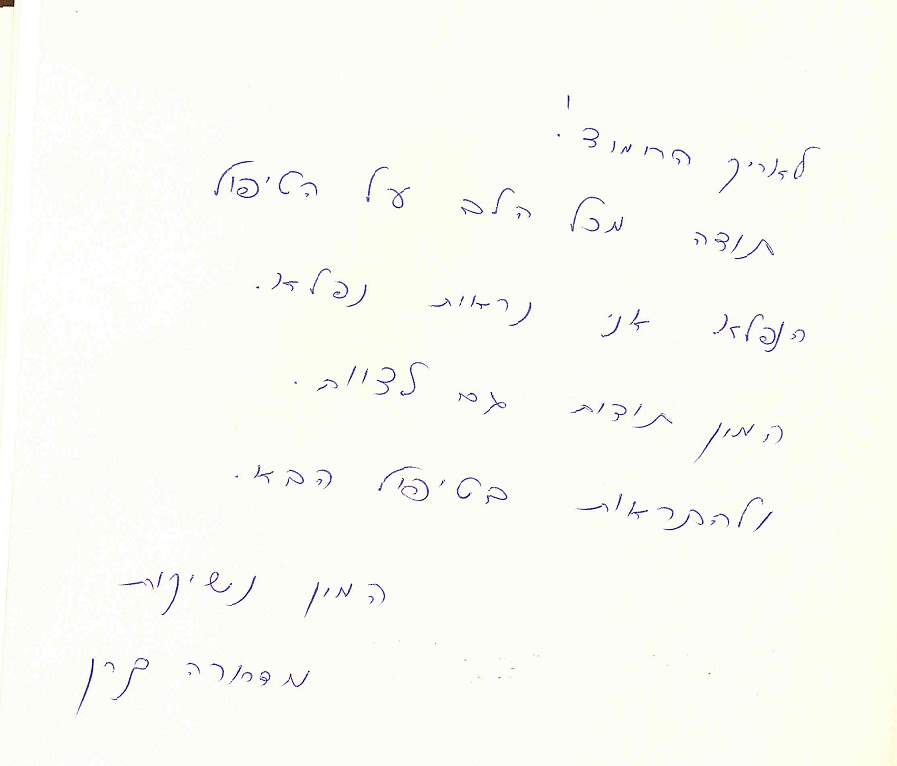 לאריק החמוד!
תודה מכל הלב על הטיפול
הנפלא אני נראית נפלא.
המון תודות גם לצוות.
ולהתראות בטיפול הבא.
המון נשיקות